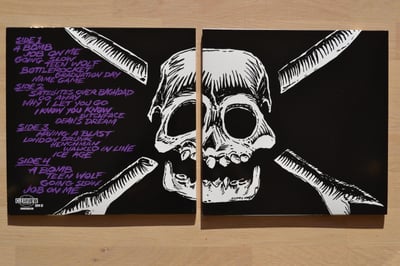 SIDE 1
A BOMB
JOB ON ME
GOING SLOW
TEEN WOLF
BOTTLEROCKET
GRADUATION DAY
NAME GAME
SIDE 2
SATELLITES OVER BAGHDAD
GO AWAY
WHY I LET YOU GO
I KNOW YOU KNOW
BITCHFACE
DEAN'S DREAM
SIDE 3
HAVING A BLAST
LONDON DRUGS
HENCHMAN
WALKED IN LINE
ICE AGE
SIDE 4
A BOMB
TEEN WOLF
GOING SLOW
JOB ON ME